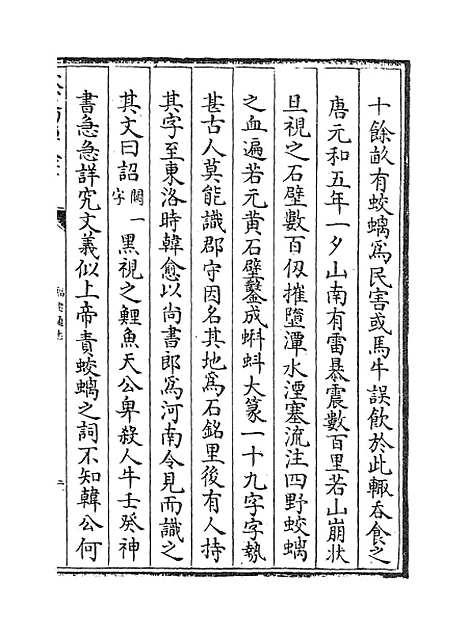 十餘畝有蛟螭爲民害或馬牛誤飲於此輒吞食之
唐元和五年一夕山南有雷暴震數百里若山崩狀
旦視之石壁數百仭摧墮潭水湮塞流注四野蛟螭
之血遍若元黄石壁鑿成蝌蚪大篆一十九字字勢
甚古人莫能識郡守因名其地爲石銘里後有人持
其字至東洛時韓愈以尚書郎爲河南令見而識之
其文曰詔闕一字黑視之鯉魚天公卑殺人牛壬癸神
書急急詳究文義似上帝責蛟螭之詞不知韓公何
二